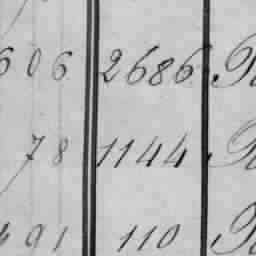 606 2686
78 1144
91 110